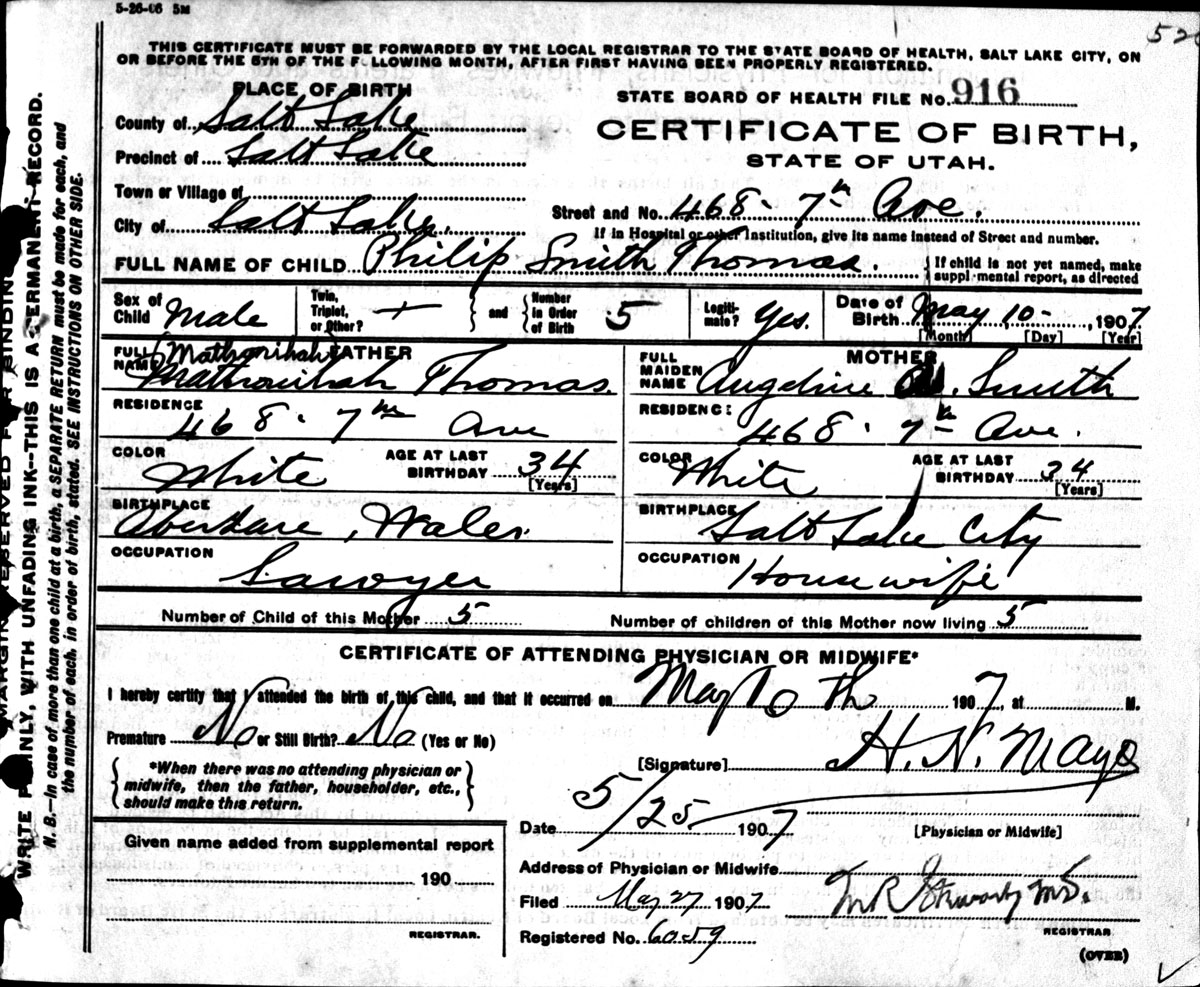 5-26-06 5M
THIS CERTIFICATE MUST BE FORWARDED BY THE LOCAL REGISTRAR TO THE STATE BOARD OF HEALTH, SALT LAKE CITY, ON
OR BEFORE THE 5TH OF THE FOLLOWING MONTH, AFTER FIRST HAVING BEEN PROPERLY REGISTERED.
PLACE OF BIRTH
County of Salt Lake
Precinct of Salt Lake
Town or Village of
City of Salt Lake
STATE BOARD OF HEALTH FILE No. 916
CERTIFICATE OF BIRTH,
STATE OF UTAH.
Street and No. 468 - 7th Ave.
If in Hospital or other Institution, give its name instead of Street and number.
FULL NAME OF CHILD Philip Smith Thomas.
If child is not yet named, make
supplemental report, as directed
Sex of Child Male
Twin, Triplet, or Other? +
and
Number in Order of Birth 5
Legitimate? Yes.
Date of Birth May 10 - , 1907
[Month] [Day] [Year]
FATHER
FULL NAME (Mathonihah)
Mathonihah Thomas.
RESIDENCE
468 - 7th Ave
COLOR White
AGE AT LAST BIRTHDAY 34
[Years]
BIRTHPLACE
Aberdare, Wales.
OCCUPATION
Lawyer
MOTHER
FULL MAIDEN NAME Angeline Smith
RESIDENCE
468 - 7th Ave.
COLOR White
AGE AT LAST BIRTHDAY 34
[Years]
BIRTHPLACE
Salt Lake City
OCCUPATION
Housewife
Number of Child of this Mother 5
Number of children of this Mother now living 5
CERTIFICATE OF ATTENDING PHYSICIAN OR MIDWIFE*
I hereby certify that I attended the birth of this child, and that it occurred on May 10th 1907, at M.
Premature No or Still Birth? No (Yes or No)
*When there was no attending physician or
midwife, then the father, householder, etc.,
should make this return.
[Signature] H. N. Mayo
Date 5/25 1907
[Physician or Midwife]
Given name added from supplemental report
190
REGISTRAR.
Address of Physician or Midwife
Filed May 27 1907
M.D.
REGISTRAR
Registered No. 6059
(OVER)
MARGIN RESERVED FOR BINDING
WRITE PLAINLY, WITH UNFADING INK--THIS IS A PERMANENT RECORD.
N. B.--In case of more than one child at a birth, a SEPARATE RETURN must be made for each, and
the number of each, in order of birth, stated. SEE INSTRUCTIONS ON OTHER SIDE.